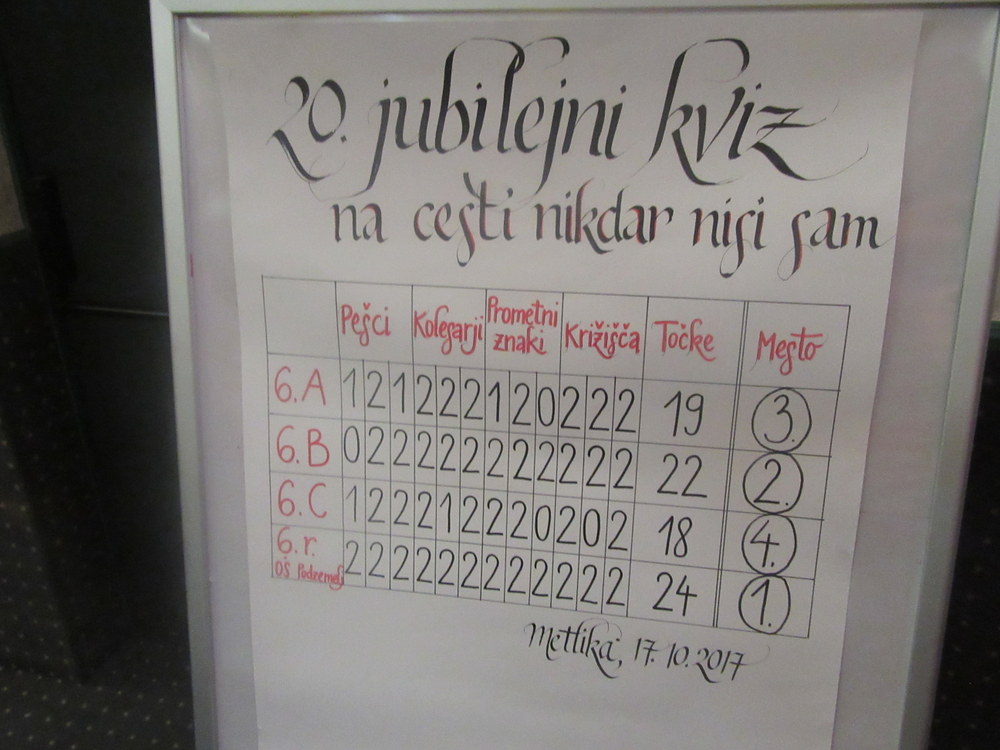 20. jubilejni kviz
na cesti nikdar nisi sam
Pešci Kolesarji Prometni znaki Križišča Točke Mesto
6.A 1 2 1 2 2 2 1 2 0 2 2 2 19 3.
6.B 0 2 2 2 2 2 2 2 2 2 2 2 22 2.
6.C 1 2 2 2 1 2 2 2 0 2 0 2 18 4.
6.r. OŠ Podzemelj 2 2 2 2 2 2 2 2 2 2 2 2 24 1.
Metlika, 17.10.2017